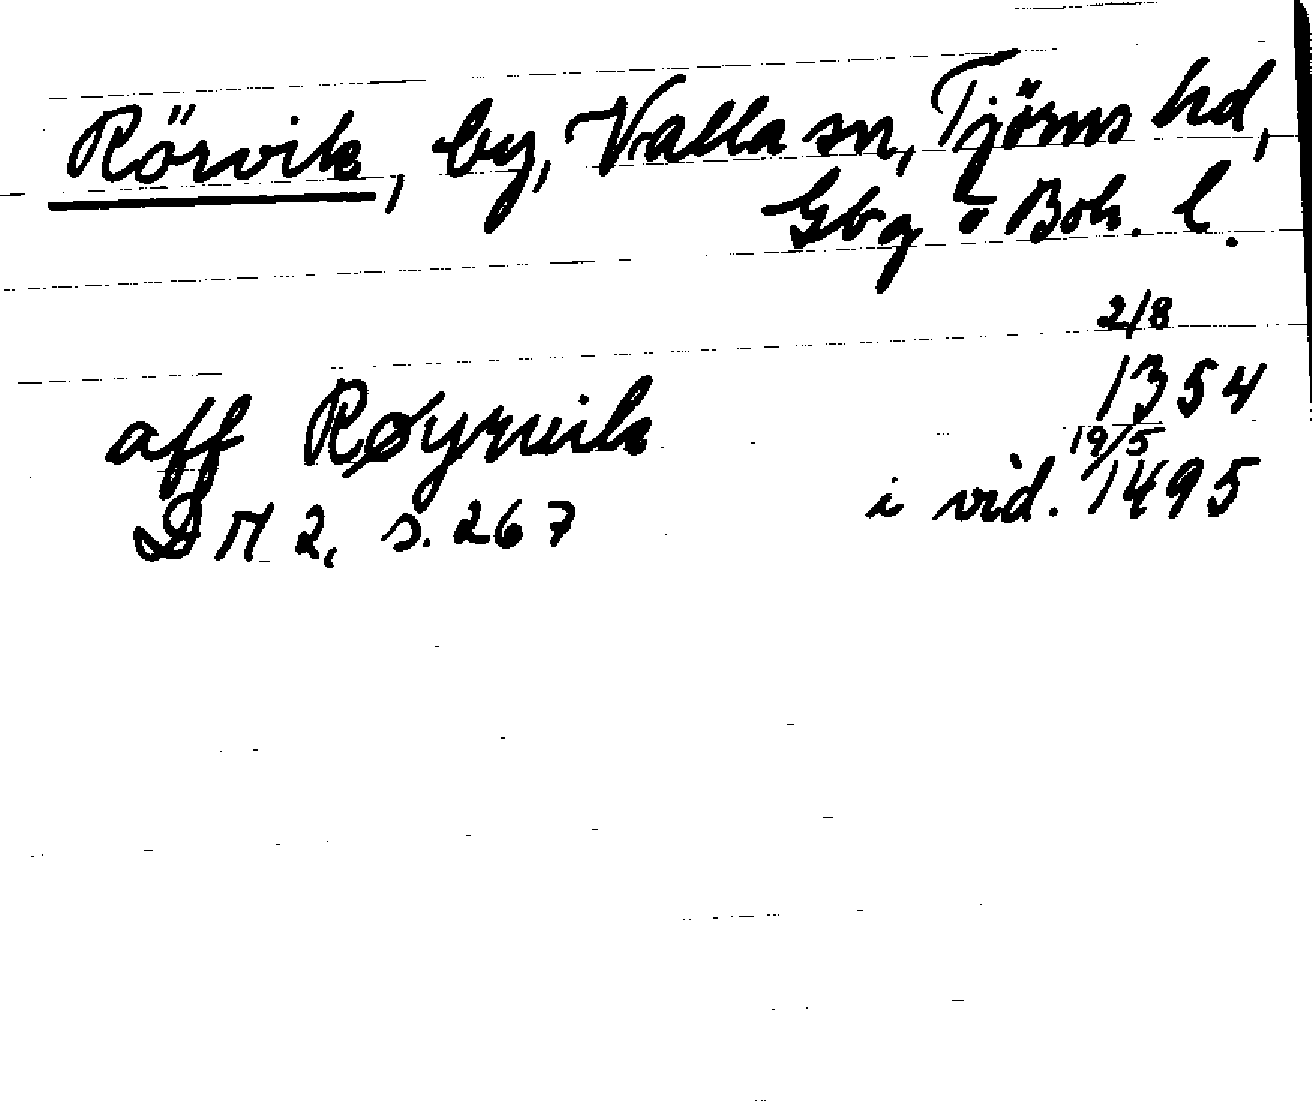 Rörvik, by, Valla sn, Tjörns hd,
Gbg o Boh. l.
2/8
aff Røyrvik 1354
19/5
DN 2, s. 267 i vid. 1495